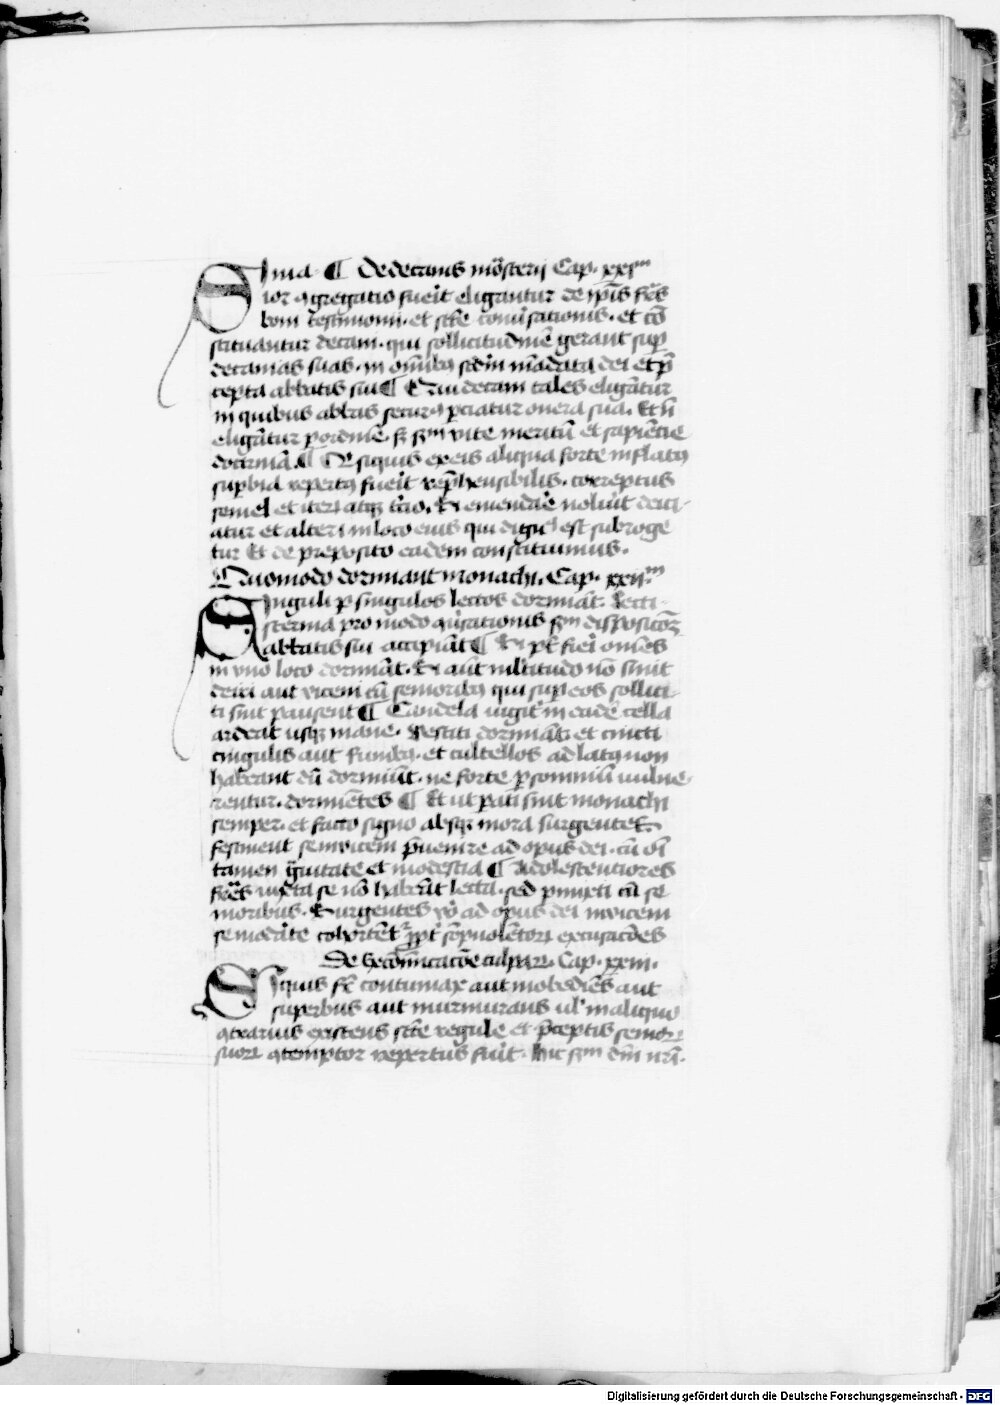 ma. ¶ De decanis mōsterij Cap. xxjm
Sior ꝯgregatio fueĩt eligantur de ip̃is fr̃es
boni testimonii. et sc̃te conũsationis. et cõ
stituantur decani. qui sollicitudinẽ gerant sup̱
decanias suas. in om̃ibꝯ scdm mãdata dei et p̃
cepta abbatis sui ¶ Qui decani tales eligãtur
in quibus abbas securꝯ ꝑciatur onera sua. Et ñ
eligãtur ꝑ ordinẽ. sꝫ sm vite meritũ et sapiẽtie
doctrinã. ¶ Qd̃ siquis ex eis aliqua forte inflatꝯ
suꝑbia repertꝯ fueĩt rep̃hensibilis. correptus
semel et iteꝝ atqꝫ t̃cio. Si emendãe noluĩt deici-
atur et alter in loco eius qui dignꝯ est subroge
tur Et de preposito eadem constituimus.
Quomodo dormiant monachi. Cap. xxijm
Singuli ꝑ singulos lectos dormiãt. Lecti-
sternia pro modo ꝯũsationis sm dispositõeꝫ
abbatis sui accipiãt ¶ Si pt̃ fieĩ omnes
in vno loco dormiãt. Si aũt mĩtitudo nõ sinit
deni aut viceni cũ senioribꝯ qui suꝑ eos solliti-
ti sint pausent ¶ Candela iugiť in eadẽ cella
ardeat usqꝫ mane. Vestiti dormiãt. et cincti
cingulis aut funibꝯ. et cultellos ad latꝯ non
habeant dũ dormiũt. ne forte ꝑ somniũ uulne-
rentur. dormiẽtes ¶ Et ut pati sint monachi
semper. et facto signo absqꝫ mora surgentes.
festinent se inuicem p̃uenire ad opus dei. cũ oĩ
tamen g̃uitate et modestia ¶ Adolescentiores
fr̃es iuxta se nõ habeãt lecta. sed ꝑmixti cũ se
nioribus. Surgentes ṽo ad opus dei inuicem
se modãte cohortẽt ꝓpt̃ sõpnolẽtoꝝ excusacões
De excõmunicacõe culpaꝝ. Cap. xxiij.
Siquis fr̃ contumax aut inobediẽs aut
superbus aut murmurans ul' in aliquo
ꝯtrarius existens sc̃te regule et p̃ceptis senioꝝ
suoꝝ ꝯtemptor repertus fuĩt. hic sm dñi nr̃i.
Digitalisierung gefördert durch die Deutsche Forschungsgemeinschaft - DFG